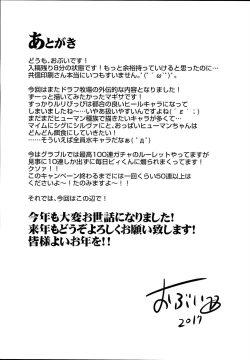 あとがき
どうも、おぶいです！
入稿残り8分の状態です！もっと余裕持っていけると思ったのに…
共信印刷さん本当にいつもすいません。
今回はまたドラフ牧場の外伝的な内容となりました！
ずーっと描いてみたかったマギサです！
すっかりルリアっぽは都合の良いヒールキャラになって
しまいましたね～いやあ扱いやすいんですよね
まだまだヒューマン種族で描きたいキャラが多くて…
マイムにシグにシルヴァにと、おっぱいヒューマンちゃんは
どんどん餌食にしていきたいですね！
…そういえば全員水キャラだなぁ
今はグラブルでは最高100連ガチャのルーレットやってますが
見事に10連しか出ずに毎日ビィくんに煽られまくってます！
クソァ！！
このキャンペーン終わるまでには一回くらい50連以上は
くださいよ～！たのみますよ～！！
それでは、今回はこの辺で！
今年も大変お世話になりました！
来年もどうぞよろしくお願い致します！
皆様よいお年を！！
おぶい
2017